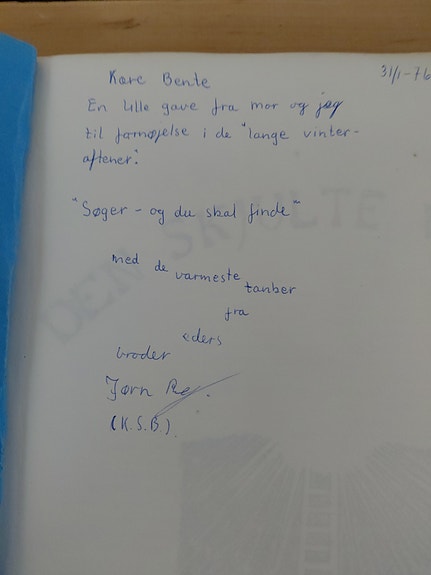 31/1-76
Kære Bente
En lille gave fra mor og jeg
til fornøjelse i de "lange vinter-
aftener."
"Søger - og du skal finde"
med de varmeste tanker
fra
eders
broder
Jørn
(K.S.B.)
DEN SKJULTE